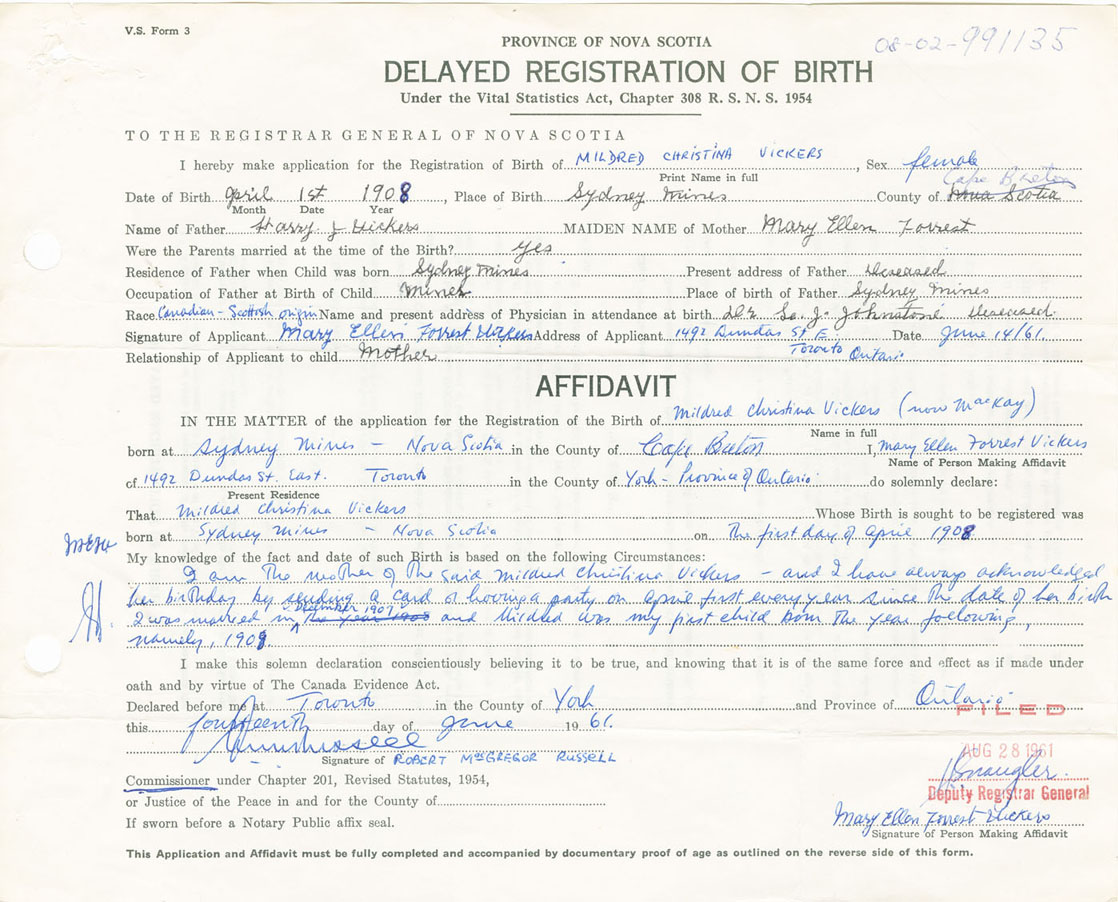 V.S. Form 3
08-02-991135
PROVINCE OF NOVA SCOTIA
DELAYED REGISTRATION OF BIRTH
Under the Vital Statistics Act, Chapter 308 R. S. N. S. 1954
TO THE REGISTRAR GENERAL OF NOVA SCOTIA
I hereby make application for the Registration of Birth of MILDRED CHRISTINA VICKERS, Sex female
Print Name in full
Cape Breton
Date of Birth April 1st 1908, Place of Birth Sydney Mines County of Nova Scotia
Month Date Year
Name of Father Harry J Vickers MAIDEN NAME of Mother Mary Ellen Forrest
Were the Parents married at the time of the Birth? yes
Residence of Father when Child was born Sydney Mines Present address of Father Deceased
Occupation of Father at Birth of Child Miner Place of birth of Father Sydney Mines
Race Canadian - Scottish origin Name and present address of Physician in attendance at birth J. Johnstone Deceased.
Signature of Applicant Mary Ellen Forrest Vickers Address of Applicant 1492 Dundas St. E. Date June 14/61.
Toronto Ontario
Relationship of Applicant to child Mother
AFFIDAVIT
IN THE MATTER of the application for the Registration of the Birth of Mildred Christina Vickers (now MacKay)
Name in full
born at Sydney Mines - Nova Scotia in the County of Cape Breton I, Mary Ellen Forrest Vickers
Name of Person Making Affidavit
of 1492 Dundas St. East. Toronto in the County of York - Province of Ontario do solemnly declare:
Present Residence
That Mildred Christina Vickers Whose Birth is sought to be registered was
born at Sydney Mines - Nova Scotia on The first day of April 1908
My knowledge of the fact and date of such Birth is based on the following Circumstances:
I am the mother of the said Mildred Christina Vickers - and I have always acknowledged
her birthday by sending a card or having a party on April first every year since the date of her birth
December 1907
I was married in the year 1908 and Mildred was my first child born the year following,
namely, 1908.
I make this solemn declaration conscientiously believing it to be true, and knowing that it is of the same force and effect as if made under
oath and by virtue of The Canada Evidence Act.
Declared before me at Toronto in the County of York and Province of Ontario
FILED
this fourteenth day of June 1961.
AUG 28 1961
Signature of ROBERT MacGREGOR RUSSELL
Commissioner under Chapter 201, Revised Statutes, 1954,
Deputy Registrar General
or Justice of the Peace in and for the County of
Mary Ellen Forrest Vickers
If sworn before a Notary Public affix seal.
Signature of Person Making Affidavit
This Application and Affidavit must be fully completed and accompanied by documentary proof of age as outlined on the reverse side of this form.